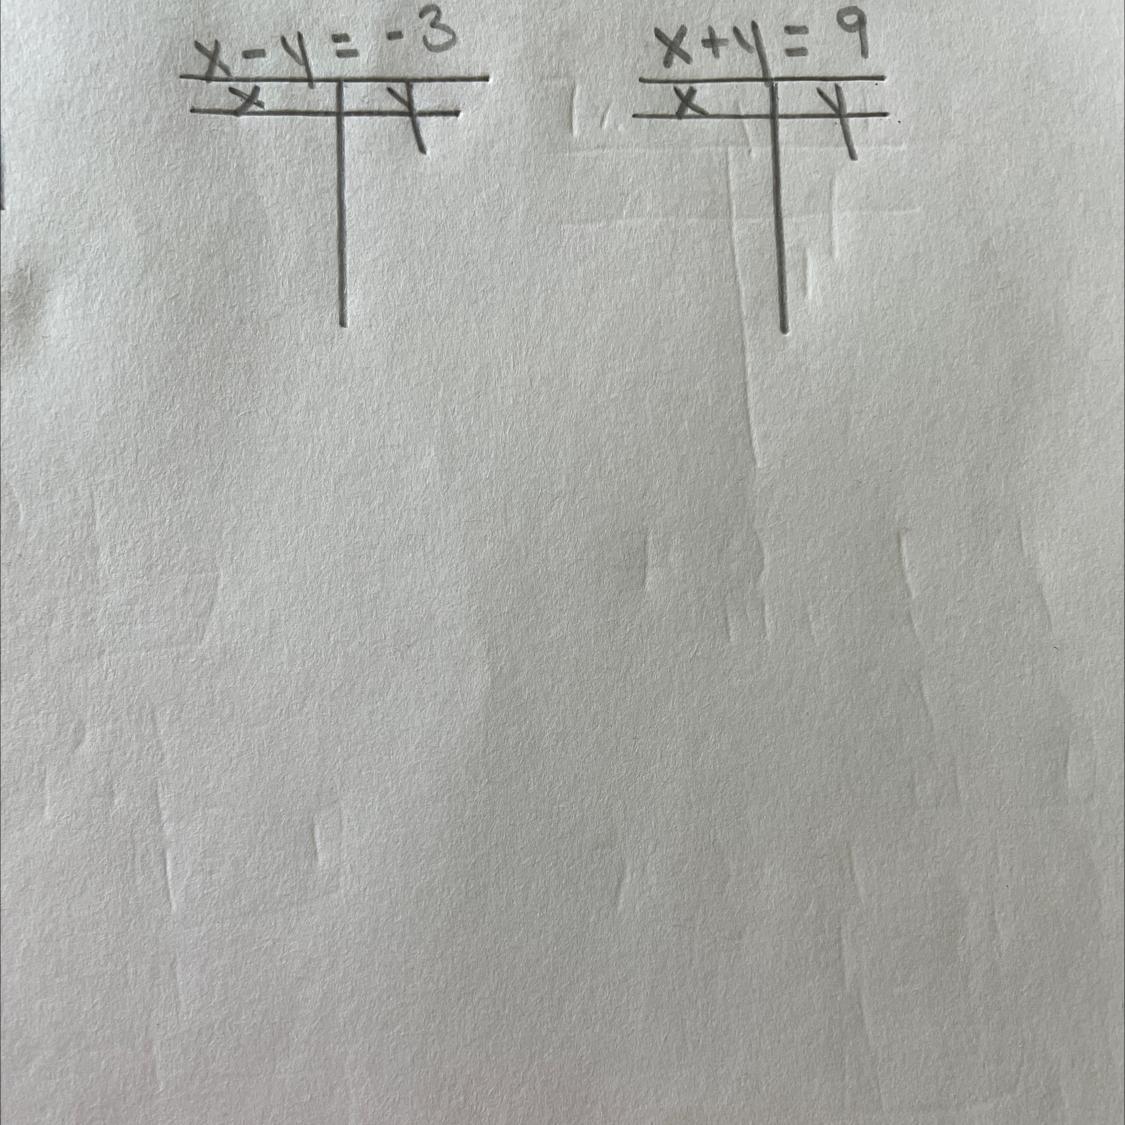 x - y = -3
x y
x + y = 9
x y